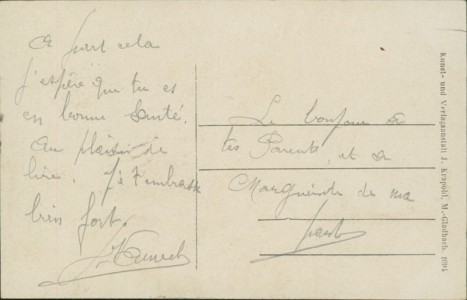 à part cela
j'espère que tu es
en bonne santé.
Au plaisir de
lire. Je t'embrasse
bien fort.
Le bonjour à
tes Parents, et à
Marguerite de ma
part
Kunst- und Verlagsanstalt J. Krapohl, M.-Gladbach. 1994